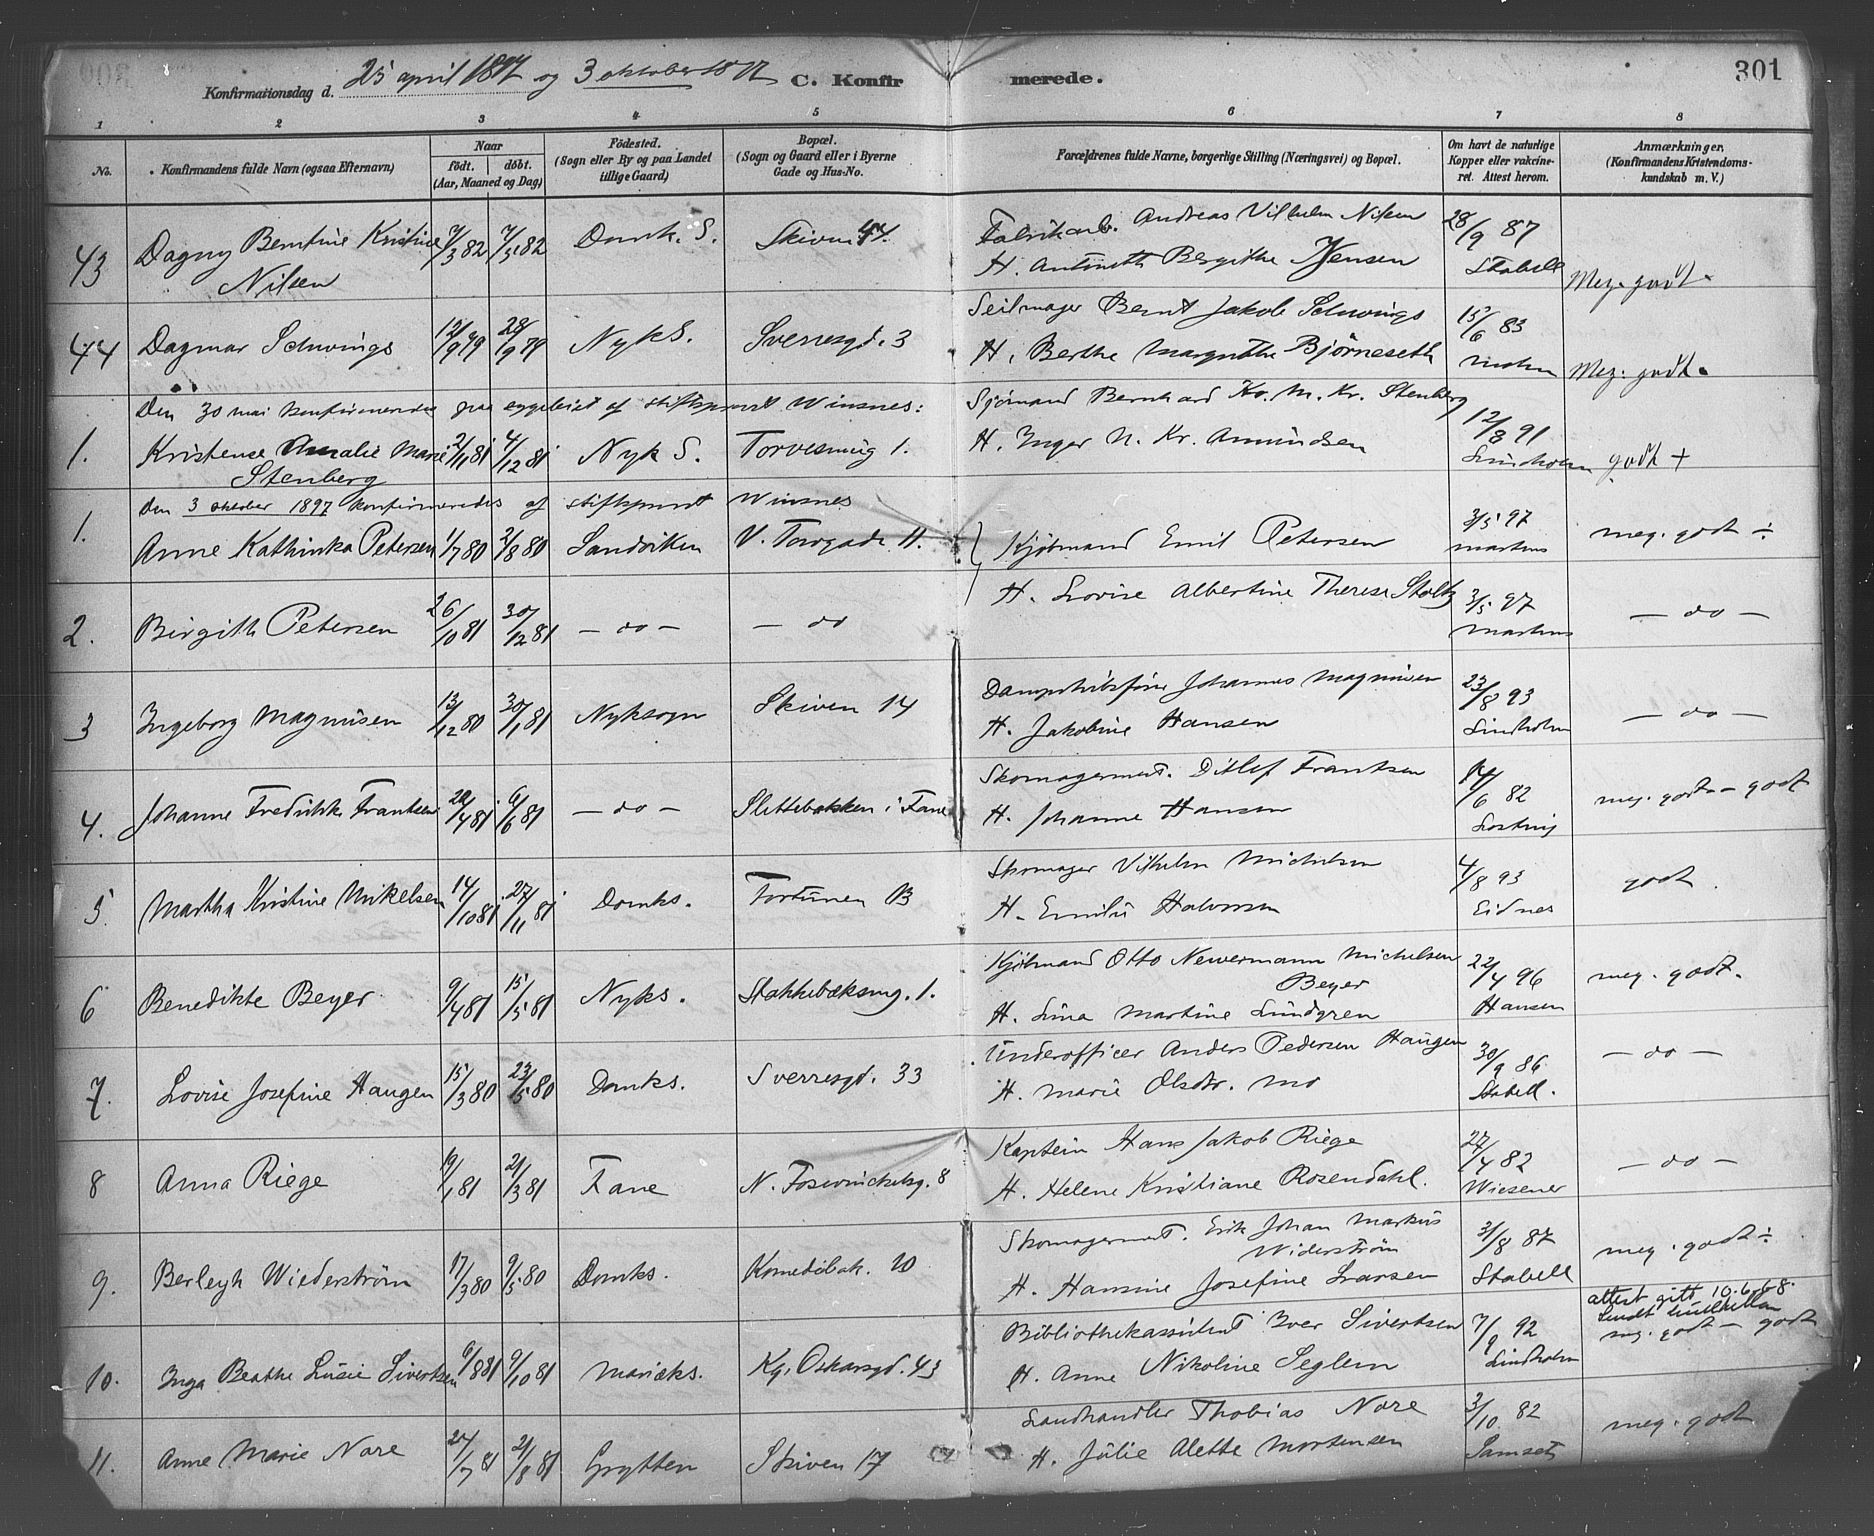 301
Konfirmationsdag d. 25 april 1897 og 3 oktober 1897 C. Konfirmerede.
1 2 3 4 5 6 7 8
No. Konfirmandens fulde Navn (ogsaa Efternavn) Naar født. døbt. (Aar, Maaned og Dag) Födested. (Sogn eller By og paa Landet tillige Gaard) Bopæl. (Sogn og Gaard eller i Byerne Gade og Hus-No. Forældrenes fulde Navne, borgerlige Stilling (Næringsvei) og Bopæl. Om havt de naturlige Kopper eller vakcineret. Attest herom. Anmærkninger. (Konfirmandens Kristendomskundskab m. V.)
43 Dagny Berntine Kristine 7/3 82 7/5 82 Domk. S. Skiven 44. Fabrikarb. Andreas Vilhelm Nilsen 28/9 87
Nilsen H. Antonette Bergithe Jensen Stabell Meg. godt.
44 Dagmar Schwings 12/9 79 28/9 79 Nyk S. Sverresgd. 3 Seilmager Bernt Jakob Schwings 15/6 83
H. Berthe Margrethe Bjørneseth Mohn Meg. godt.
Den 30 mai konfirmeredes af stiftsprovst Winsnes:
1. Kristense Amalie Marie 2/11 81 4/12 81 Nyk S. Torvesmug 1. Sjømand Bernhard Kr. M. Kr. Stenberg 12/8 91
Stenberg H. Inger N. Kr. Amundsen Lindholm godt +
Den 3 oktober 1897 konfirmeredes af stiftsprovst Winsnes
1. Anne Kathinka Petersen 1/7 80 2/8 80 Sandviken V. Torvgade 11. Kjøbmand Emil Petersen 3/5 97 Martens meg. godt ÷
2. Birgith Petersen 26/10 81 30/12 81 — do — — do H. Lovise Albertine Therese Stoltz 3/5 97 Martens — do —
3 Ingeborg Magnusen 13/12 80 30/1 81 Nyksogn Skiven 14 Johannes Magnusen 23/8 93
H. Jakobine Hansen Lindholm — do —
4. Johanne Fredrikke Frantsen 28/4 81 6/6 81 — do — Slettebakken i Fane Skomagermest. Ditlef Frantsen 14/6 82
H. Johanne Hansen meg. godt - godt
5. Martha Kristine Mikelsen 14/10 81 27/11 81 Domks. Fortunen B Skomager Vilhelm Michelsen 4/8 93
H. Emilie Halvorsen Eidnes godt.
6 Benedikte Beyer 9/4 81 15/5 81 Nyks. Stakkebæksmg. 1. Kjøbmand Otto Newermann Michelsen 22/4 96
Beyer
H. Lina Martine Lundgren Hansen meg. godt.
7. Lovise Josefine Haugen 15/3 80 23/5 80 Domks. Sverresgd. 33 Underofficer Anders Pedersen Haugen 30/9 86
H. Marie Olsdtr. Mo Stabell. — do —
8 Anna Riege 19/1 81 21/3 81 Fane N. Foswinckelsg. 8 Kaptein Hans Jakob Riege 27/4 82
H. Helene Kristiane Rosendahl. Wiesener — do —
9. Berleyh Wiederstrøm 17/3 80 9/5 80 Domks. Komediebak. 10 Skomagermest. Erik Johan Markus 31/8 87
Widerstrøm
H. Hansine Josefine Larsen Stabell meg. godt ÷
attest gitt 10.6.68.
10. Inga Beathe Lusie Sivertsen 6/8 81 9/10 81 Mariæks. Kg. Oskarsgd. 43 Bibliothekassistent Iver Sivertsen 7/9 92
H. Anne Nikoline Seglem Lindholm meg. godt - godt
11. Anne Marie Nore 24/7 81 21/8 81 Grytten Skiven 17 Landhandler Thobias Nore 3/10 82
H. Julie Alette Mortensen Samset meg. godt